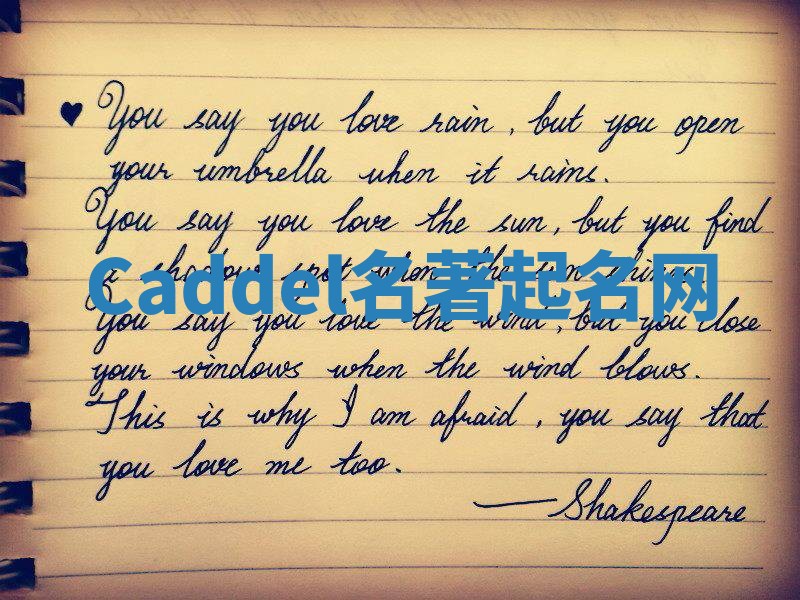 ♥ You say you love rain, but you open
your umbrella when it rains.
You say you love the sun, but you find
a shadow spot when the sun shines.
Caddel名著起名网
You say you love the wind, but you close
your windows when the wind blows.
This is why I am afraid, you say that
you love me too.
—Shakespeare